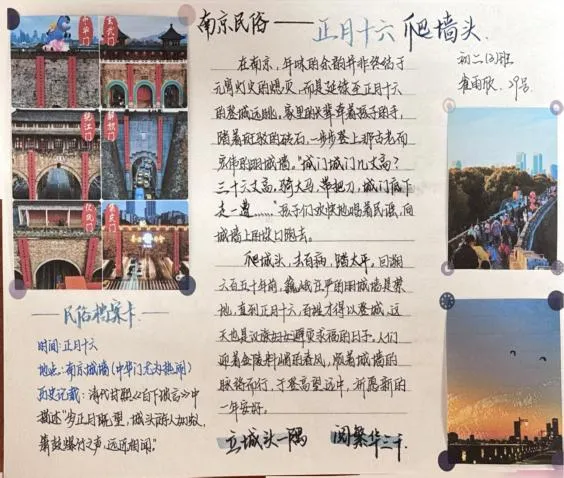 南京民俗——正月十六 爬墙头
初二(3)班
中华门
玄武门
挹江门
解放门
仪凤门
在南京，年味的余韵并非终结于
元宵灯火的熄灭，而是延续至正月十六
的登城远眺，家里的大辈牵着孩子的手，
踏着斑驳的砖石，一步步登上那古老而
宏伟的明城墙。“城门城门几丈高？
三十六丈高，骑大马，带把刀，城门底下
走一遭……”孩子们欢快地唱着民谣，向
城墙上的坡口跑去。
爬城头，去百病，踏太平，回溯
六百五十年前，巍峨庄严的明城墙是禁
地，直到正月十六，百姓才得以登城，这
天也是汉族妇女避灾求福的日子。人们
迎着金陵料峭的春风，顺着城墙的
脉络而行，于登高望远中，祈愿新的
一年安好。
立城头一隅 阅繁华三千
——民俗档案卡——
时间：正月十六
地点：南京城墙（中华门尤为热闹）
历史记载：清代甘熙《白下琐言》中
描述“岁正月既望，城头游人如蚁，
箫鼓爆竹之声，远近相闻。”